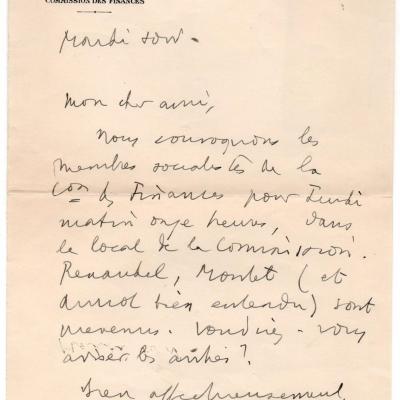 COMMISSION DES FINANCES
Mardi soir -
Mon cher ami,
Nous convoquons les
membres socialistes de la
Con des Finances pour Jeudi
matin onze heures, dans
le local de la Commission.
Renaudel, Moutet (et
Auriol bien entendu) sont
prévenus. Voudriez-vous
aviser les autres ?
Bien affectueusement,